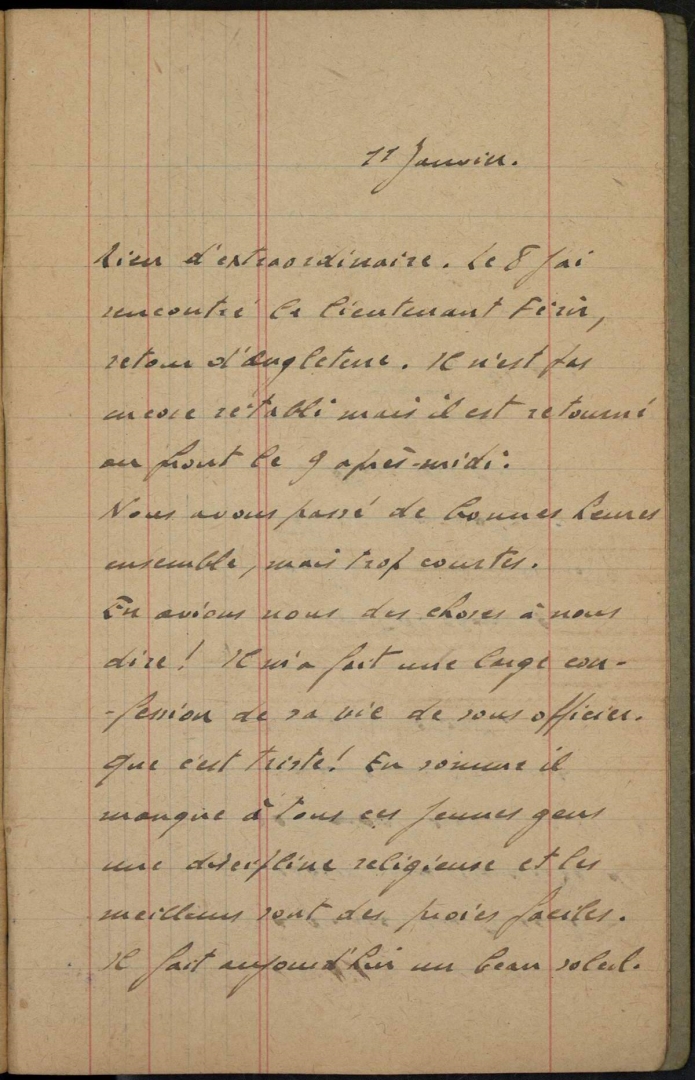 11 Janvier.
Rien d'extraordinaire. Le 8 j'ai
rencontré le lieutenant Férir,
retour d'Angleterre. Il n'est pas
encore rétabli mais il est retourné
au front le 9 après-midi.
Nous avons passé de bonnes heures
ensemble, mais trop courtes.
En avions nous des choses à nous
dire! Il m'a fait une large con-
-fession de sa vie de sous officier.
Que c'est triste! En somme il
manque à tous ces jeunes gens
une discipline religieuse et les
meilleurs sont des proies faciles.
Il fait aujourd'hui un beau soleil.